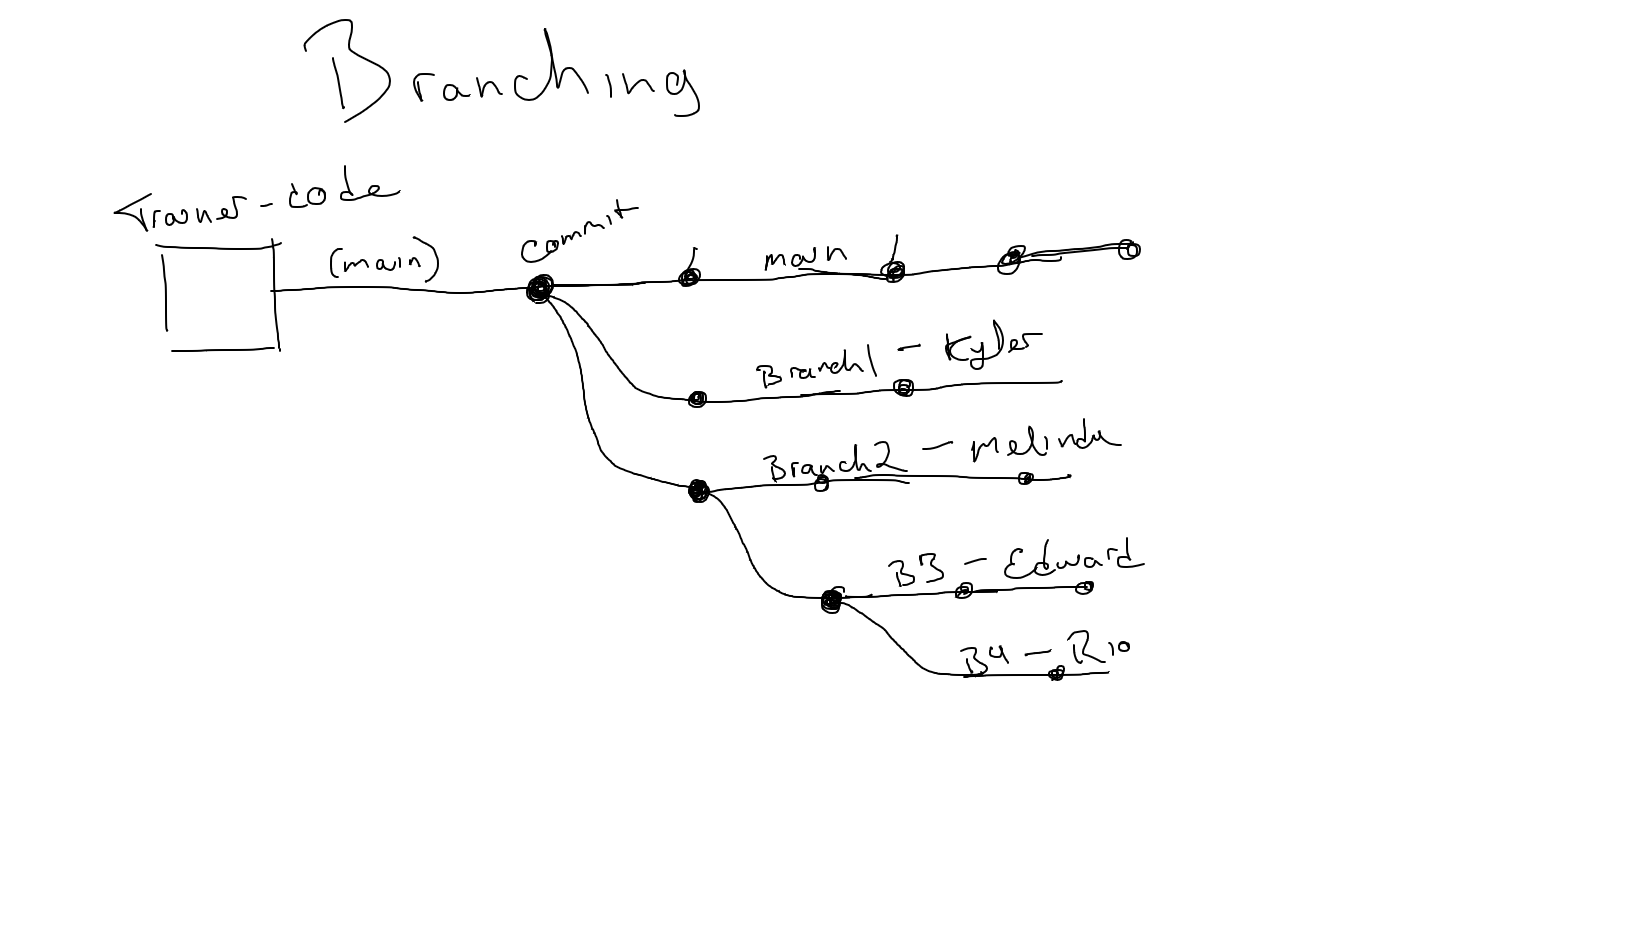 Branching
Trainer-code
(main)
commit
main
Branch1 - Kyler
Branch2 - Melinda
B3 - Edward
B4 - Rio